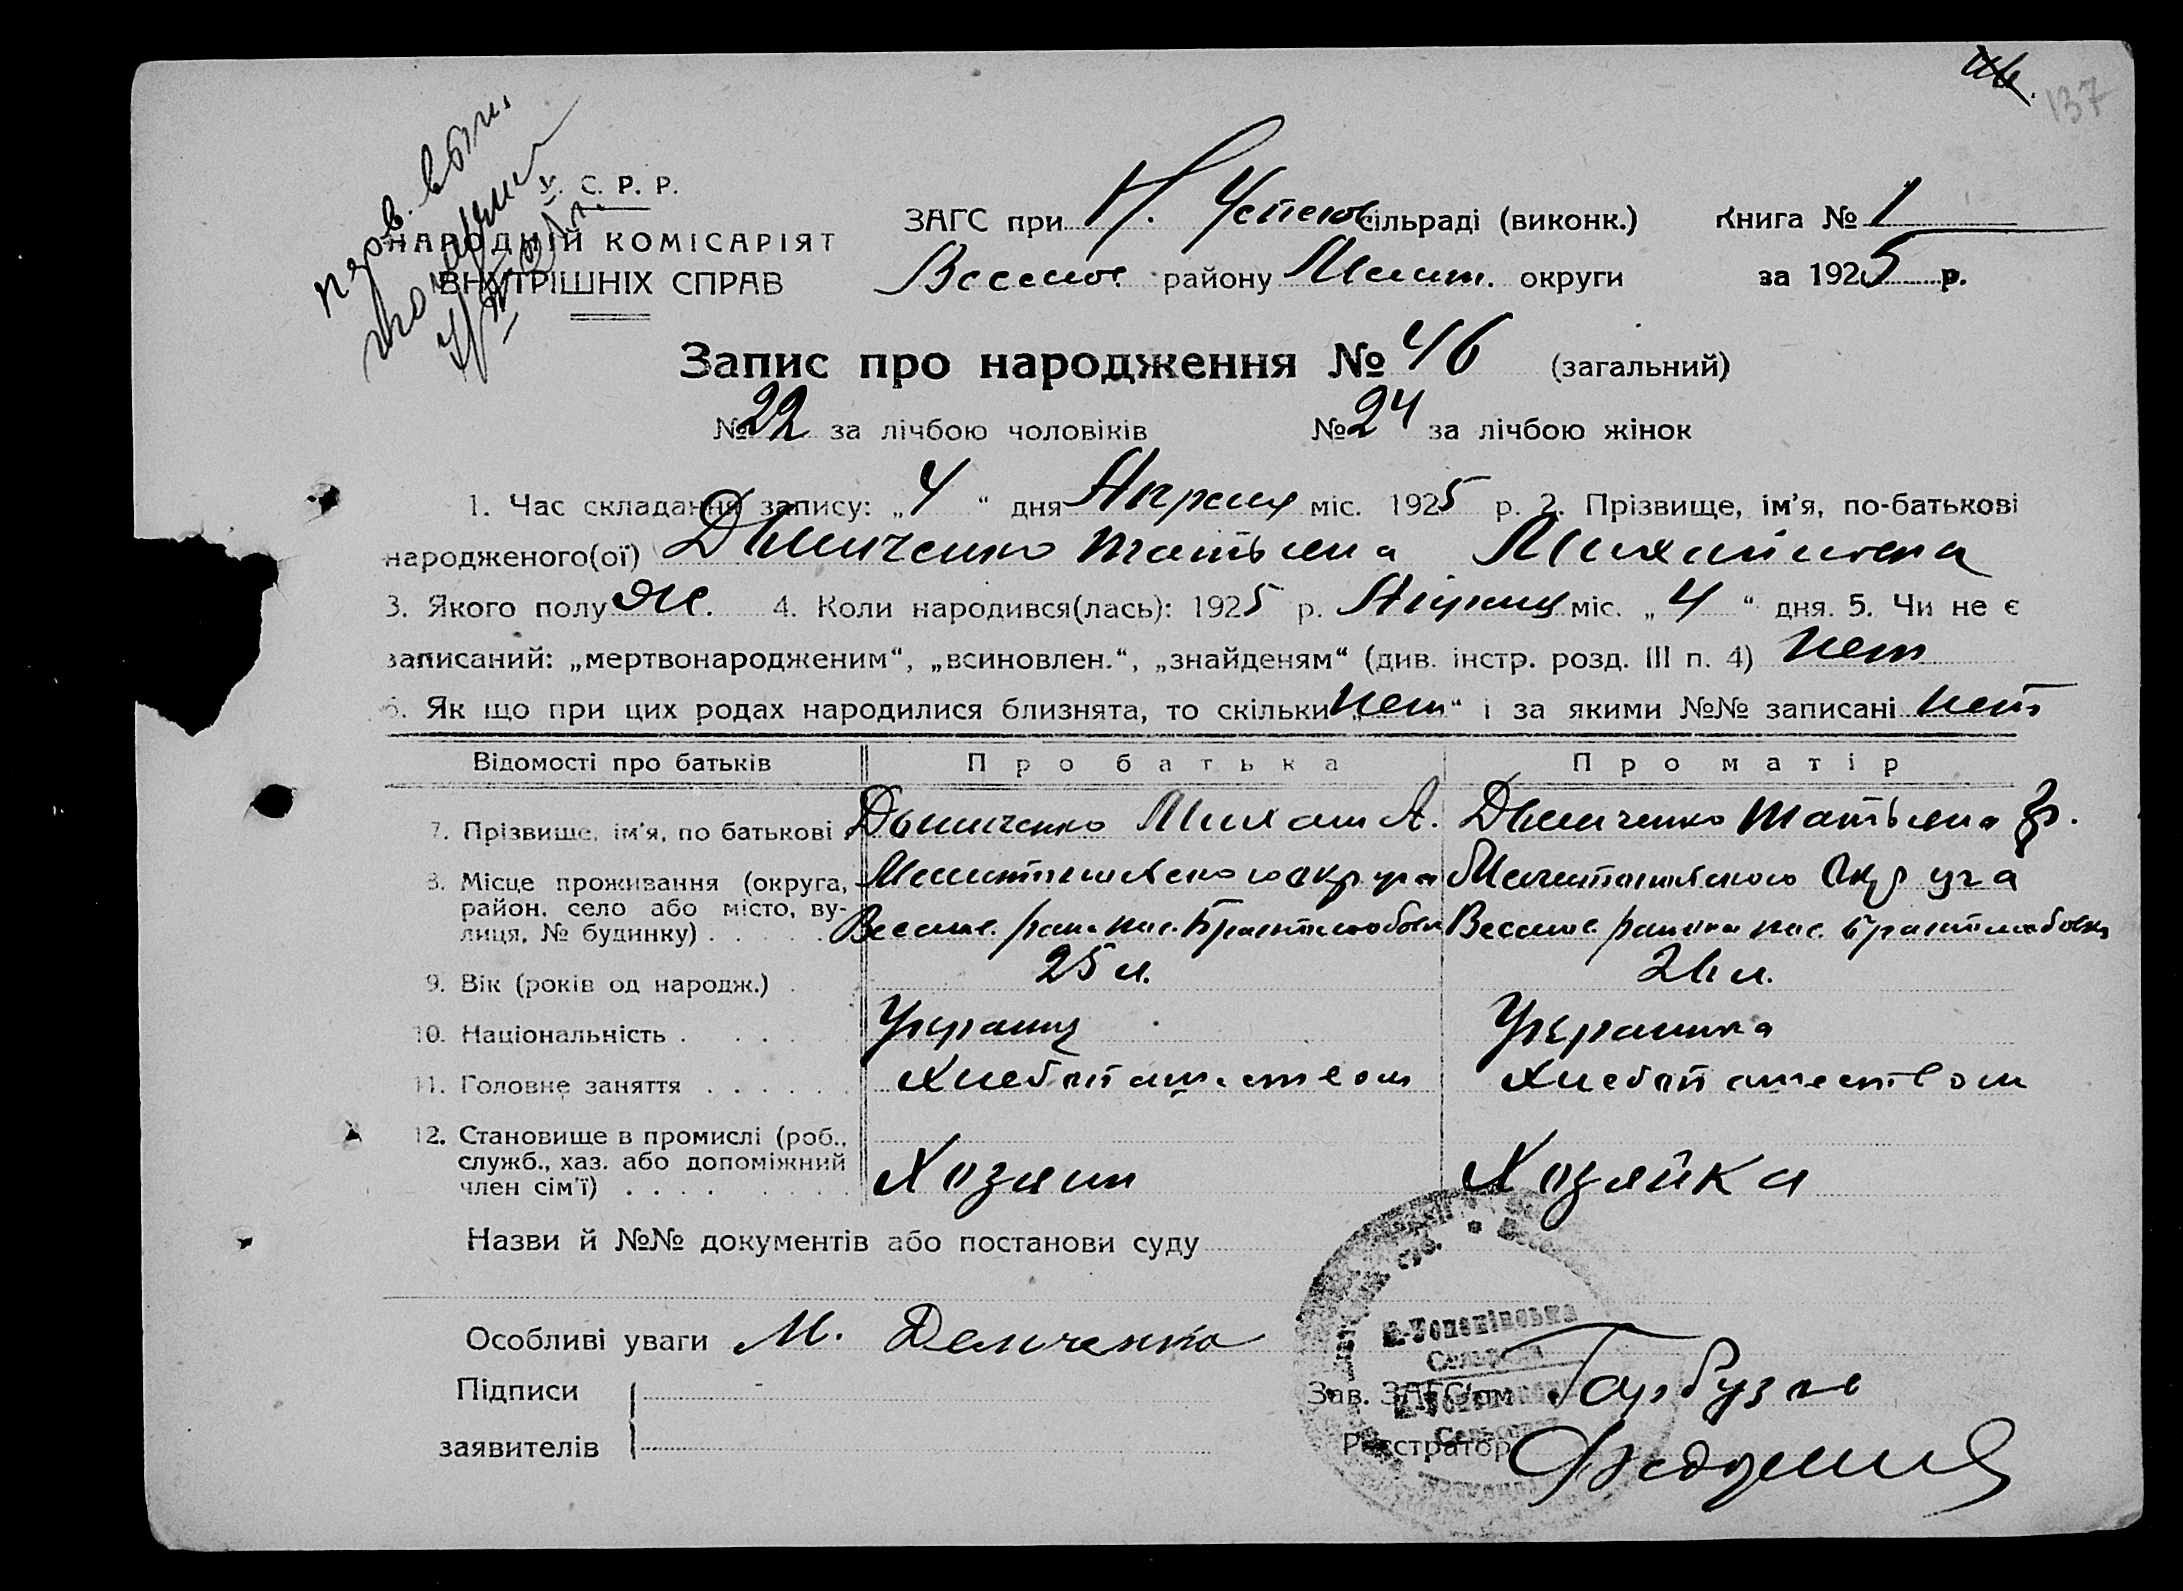 137
У. С. Р. Р.
НАРОДНІЙ КОМІСАРІЯТ
ВНУТРІШНІХ СПРАВ
ЗАГС при Н. Успенов сільраді (виконк.) Книга № 1
Веселов. району Мелит. округи за 1925 р.
Запис про народження № 46 (загальний)
№ 22 за лічбою чоловіків № 24 за лічбою жінок
1. Час складання запису: „4“ дня Апреля міс. 1925 р. 2. Прізвище, ім'я, по-батькові
народженого(ої) Татьяна Михайловна
3. Якого полу Же. 4. Коли народився(лась): 1925 р. Апреля міс. „4“ дня. 5. Чи не є
записаний: „мертвонародженим“, „всиновлен.“, „знайденям“ (див. інстр. розд. III п. 4) нет
6. Як що при цих родах народилися близнята, то скільки „нет“ і за якими №№ записані нет
Відомості про батьків Про батька Про матір
7. Прізвище, ім'я, по батькові Михаил А. Татьяна
8. Місце проживання (округа, район, село або місто, вулиця, № будинку) . . . . . Мелитопольского округа Мелитопольского Округа
Веселов. рай. Веселов. района
9. Вік (років од народж.) . 25 л. 26 л.
10. Національність . . . . . Украинц Украинка
11. Головне заняття . . . . . . Хлебопашеством Хлебопашеством
12. Становище в промислі (роб., служб., хаз. або допоміжний член сім'ї) . . . . Хозяин Хозяйка
Назви й №№ документів або постанови суду
Особливі уваги М. Демченко
Підписи
заявителів
Зав. ЗАГС'ом Гарбузов
Реєстратор